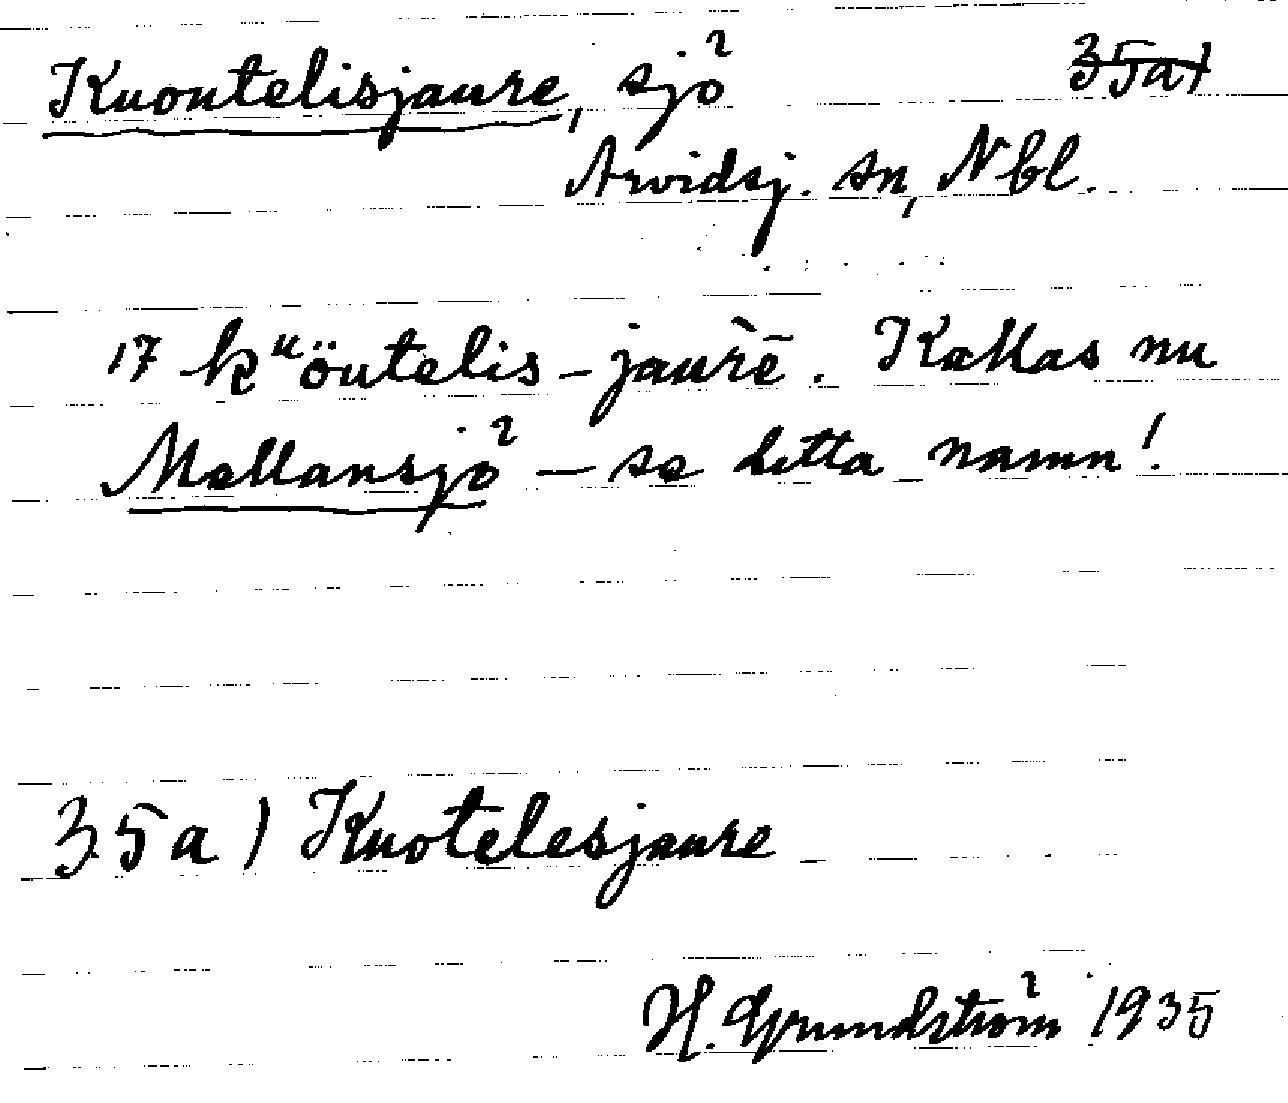 Kuontelisjaure, sjö 35a)
Arvidsj. sn, Nbl.
17 kᵘöntelis-jaùrē. Kallas nu
Mellansjö – se detta namn!
35a) Kuotelesjaure
H. Grundström 1935